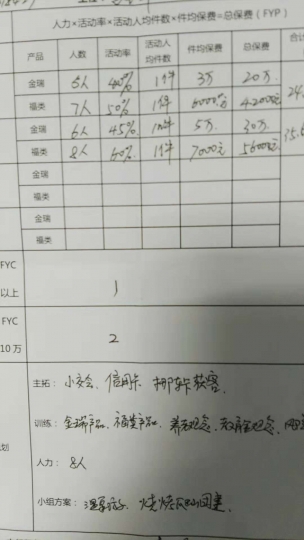 人力×活动率×活动人均件数×件均保费=总保费(FYP)
产品 人数 活动率 活动人均件数 件均保费 总保费 合计
金瑞 6人 40% 1件 3万 20万
福类 7人 50% 1件 6000元 42000元 24.
金瑞 6人 45% 1件 5万 30万
福类 8人 60% 1件 7000元 56000元
金瑞
福类
金瑞
福类
FYC
以上 1
FYC
10万 2
主拓: 小交会、信用卡
训练: 金瑞产品、福类产品、养老观念、教育金观念、
划
人力: 8人
小组方案: